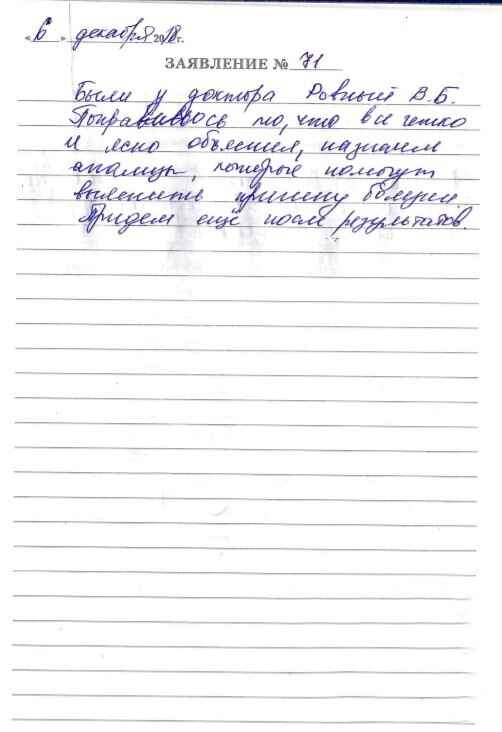 « 6 » декабря 2018 г.
ЗАЯВЛЕНИЕ № 71
Были у доктора Ровный В.Б.
Понравилось то, что все четко
и ясно объяснил, назначил
анализы, которые помогут
выяснить причину болезни.
Придем ещё после результатов.